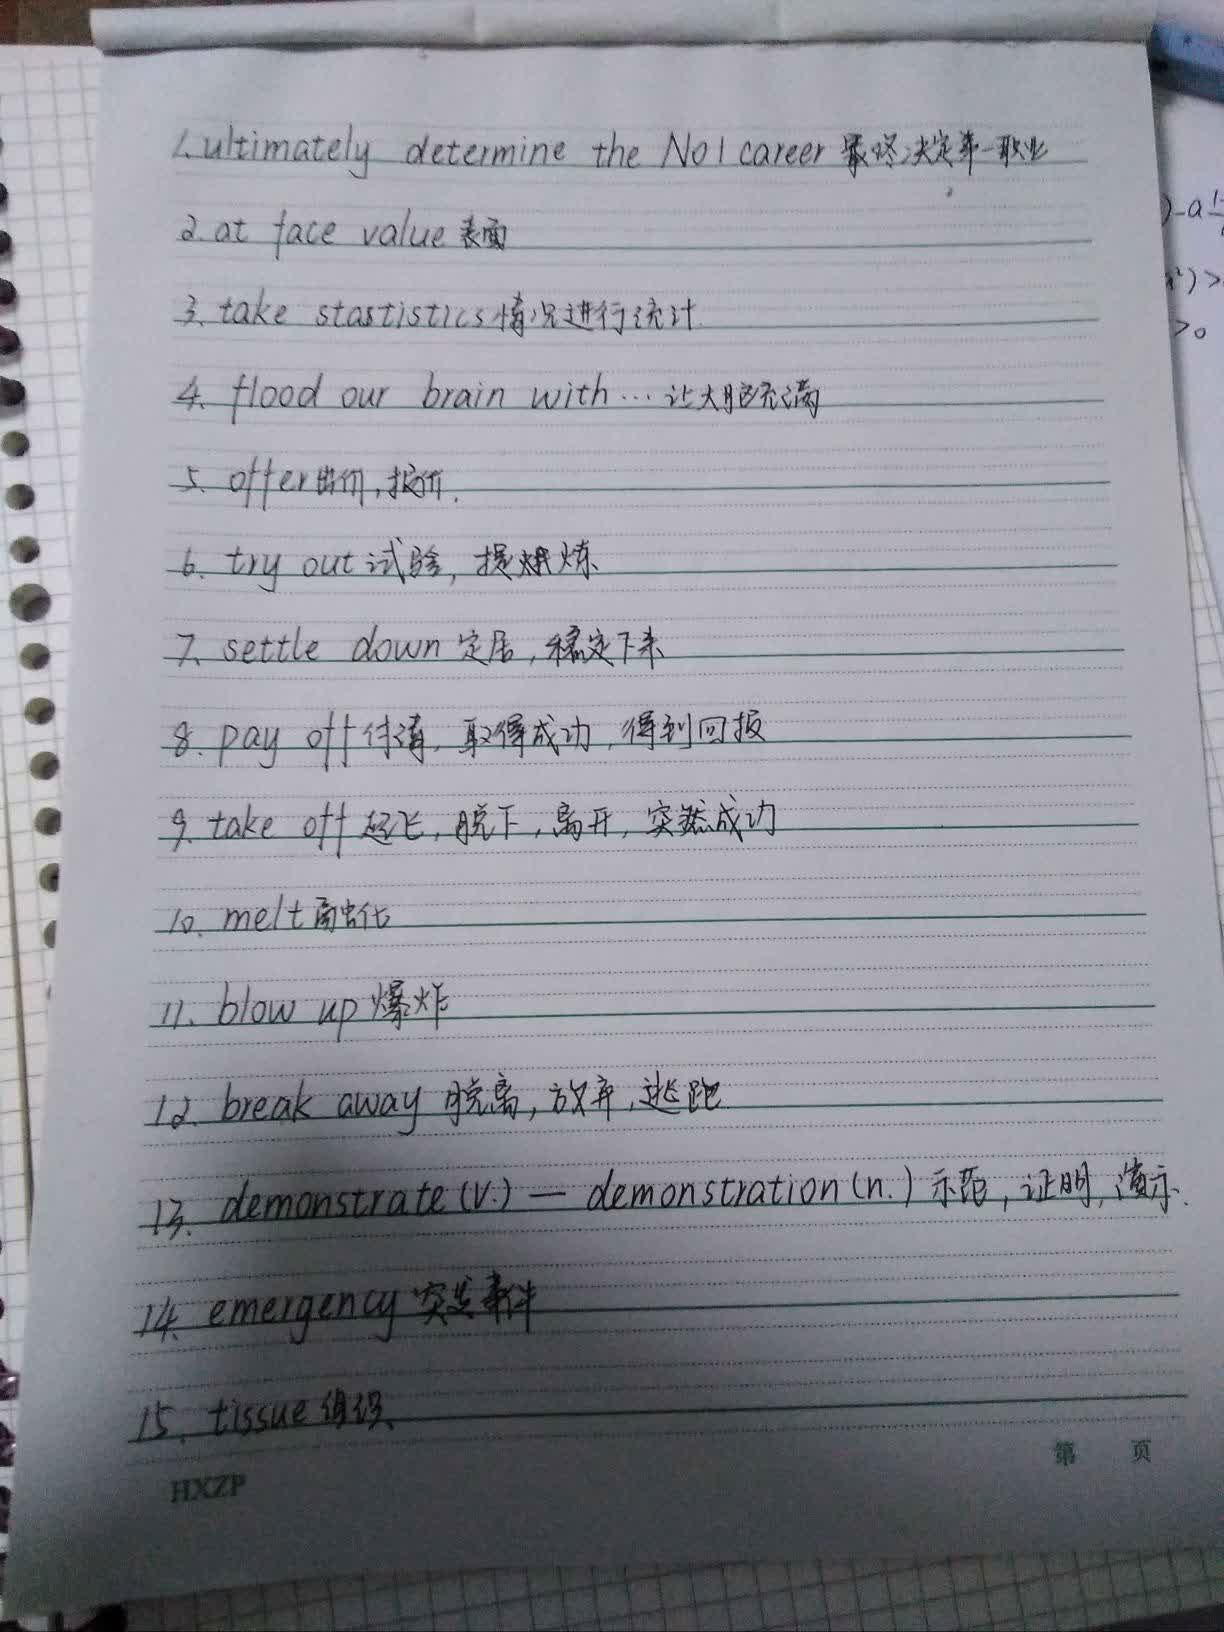 1. ultimately determine the No1 career 最终决定第一职业
2. at face value 表面
3. take stastistics 情况进行统计
4. flood our brain with… 让大脑充满
5. offer 出价,报价.
6. try out 试验, 提炼
7. settle down 定居,稳定下来
8. pay off 付清, 取得成功, 得到回报
9. take off 起飞, 脱下, 离开, 突然成功
10. melt 融化
11. blow up 爆炸
12. break away 脱离, 放弃, 逃跑
13. demonstrate (v.) — demonstration (n.) 示范, 证明, 演示.
14. emergency 突发事件
15. tissue 组织
HXZP
第 页